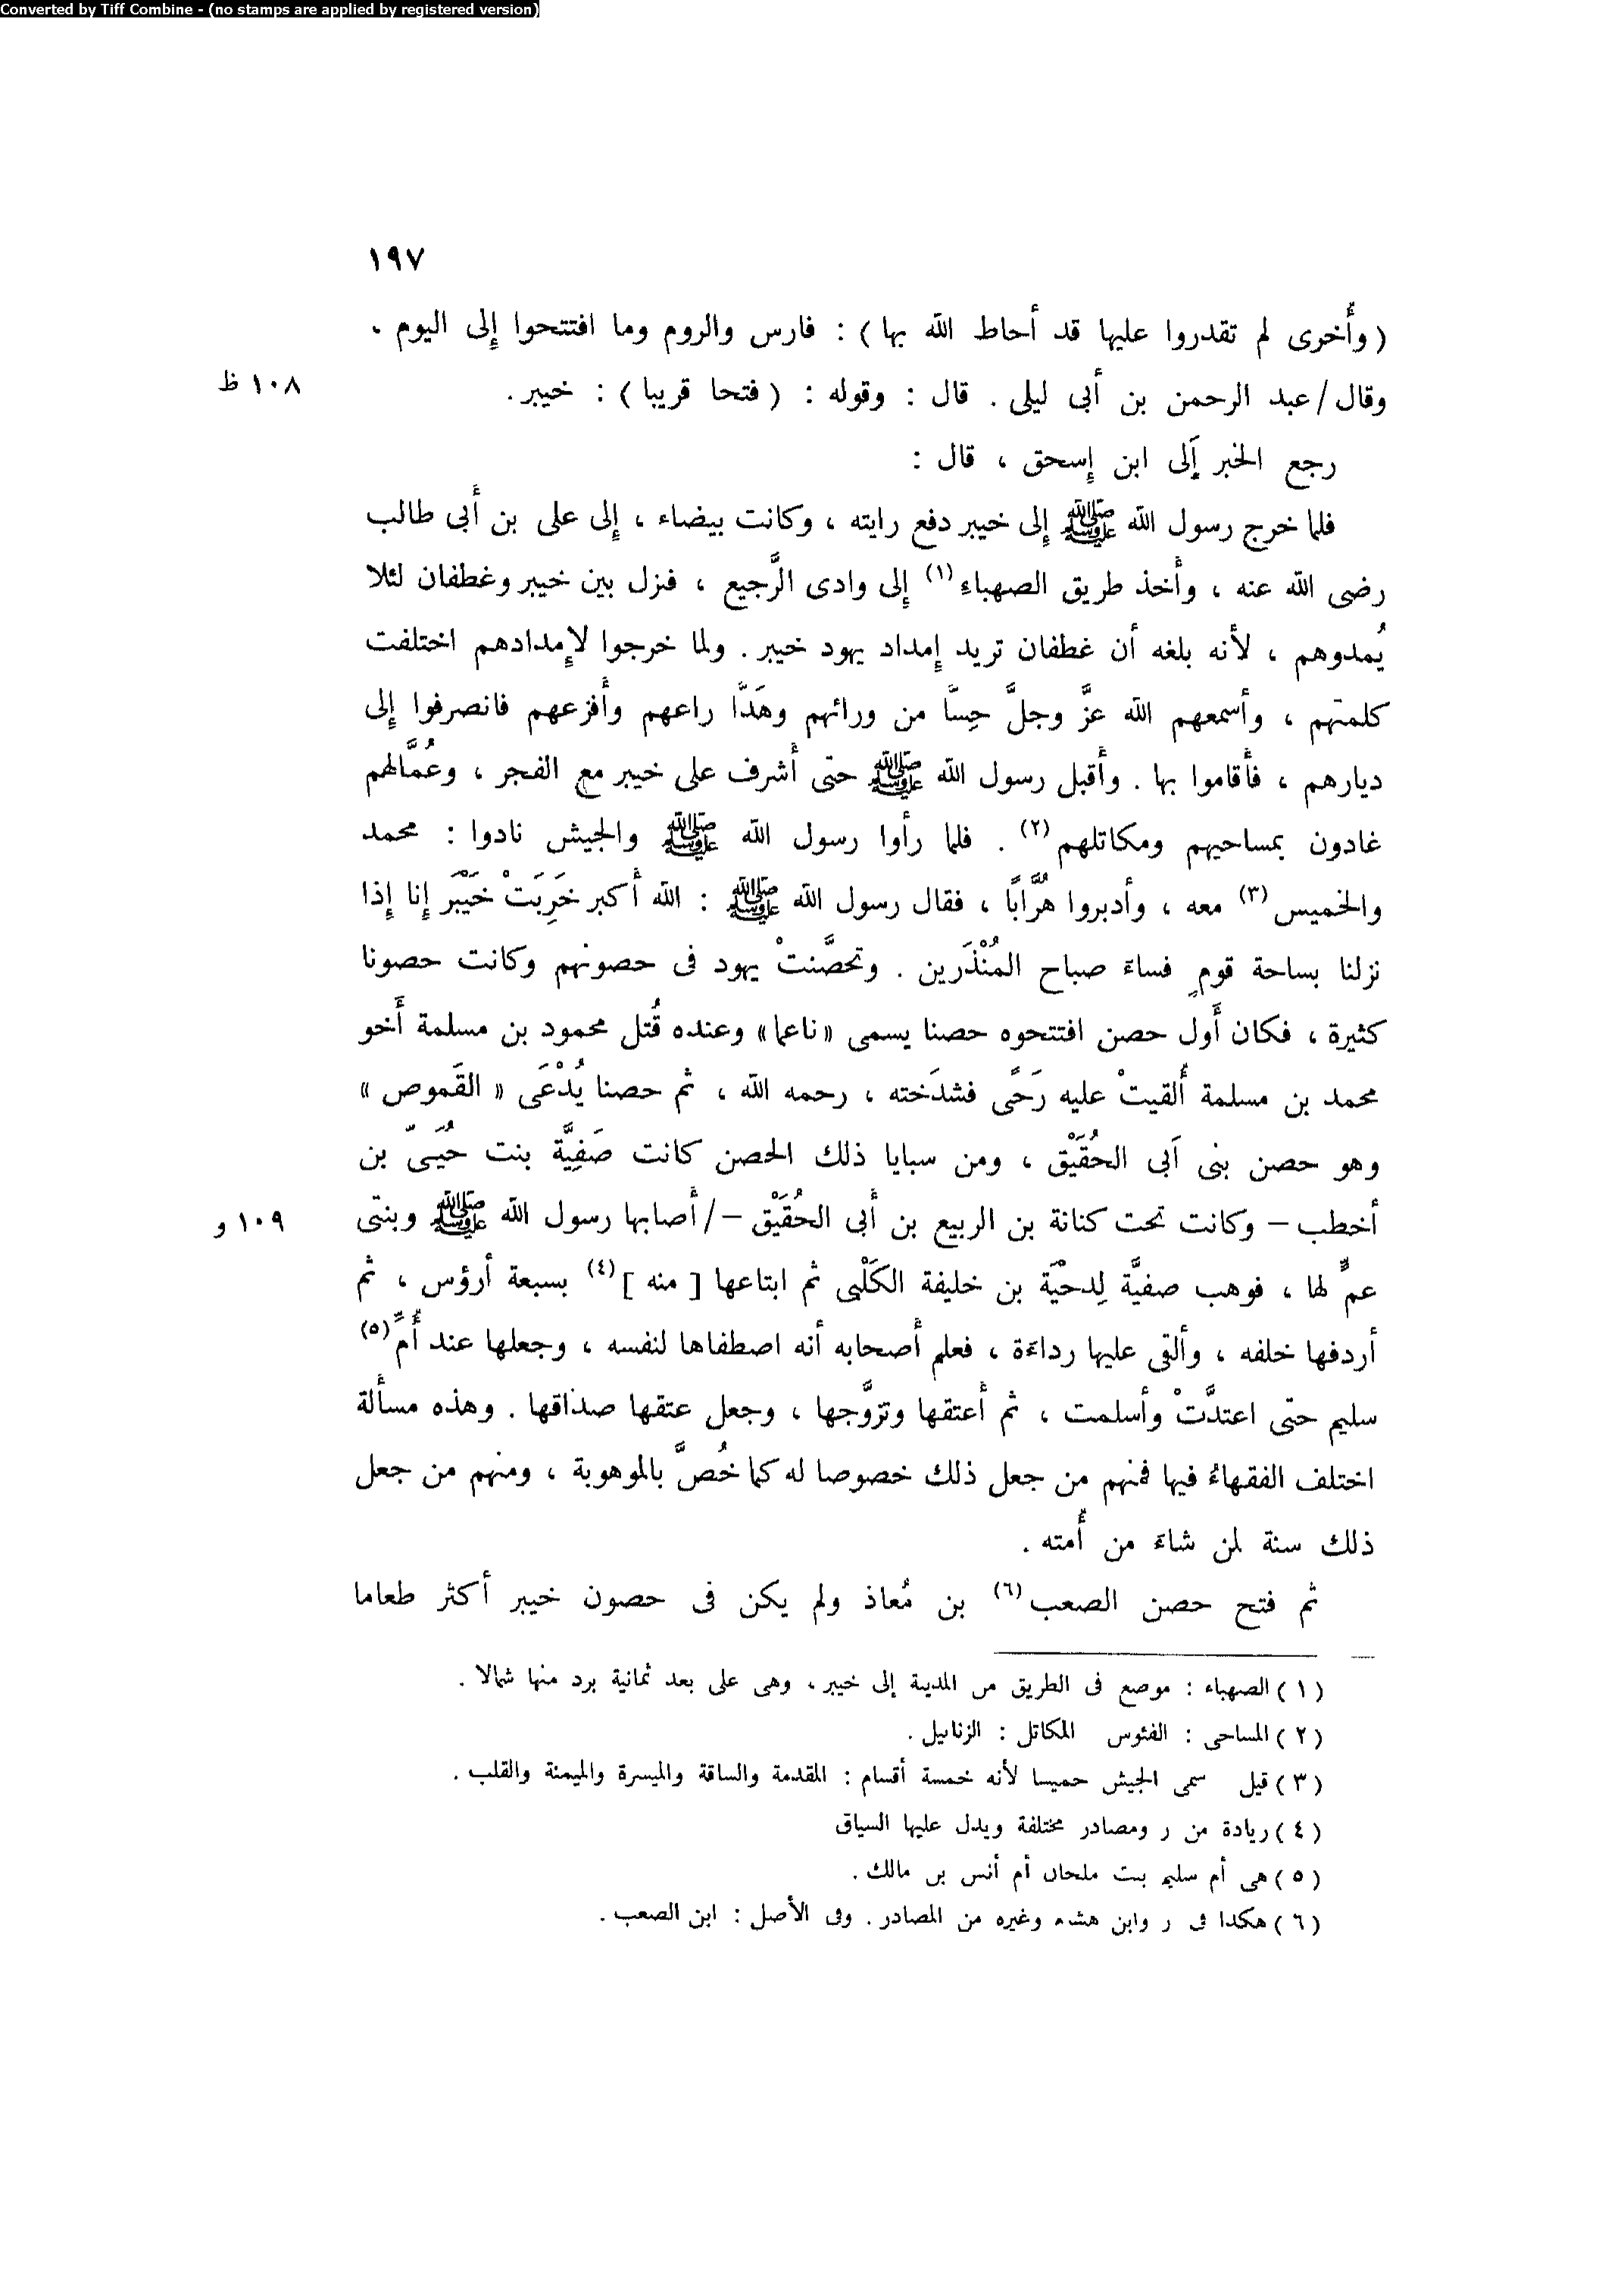 Converted by Tiff Combine - (no stamps are applied by registered version)
١٩٧
( وأُخرى لم تقدروا عليها قد أحاط الله بها ) : فارس والروم وما افتتحوا إلى اليوم ،
وقال / عبد الرحمن بن أبى ليلى . قال : وقوله : ( فتحا قريبا ) : خيبر .
١٠٨ ظ
رجع الخبر إلى ابن إسحق ، قال :
فلما خرج رسول الله ﷺ إلى خيبر دفع رايته ، وكانت بيضاء ، إلى على بن أبى طالب
رضى الله عنه ، وأخذ طريق الصهباءِ (١) إلى وادى الرَّجيع ، فنزل بين خيبر وغطفان لئلا
يُمدوهم ، لأنه بلغه أن غطفان تريد إمداد يهود خيبر . ولما خرجوا لإمدادهم اختلفت
كلمتهم ، وأسمعهم الله عزَّ وجلَّ حِسًّا من ورائهم وهَدًّا راعهم وأفزعهم فانصرفوا إلى
ديارهم ، فأقاموا بها . وأقبل رسول الله ﷺ حتى أشرف على خيبر مع الفجر ، وعُمَّالهم
غادون بمساحيهم ومكاتلهم (٢) . فلما رأوا رسول الله ﷺ والجيش نادوا : محمد
والخميس (٣) معه ، وأدبروا هُرَّابًا ، فقال رسول الله ﷺ : الله أكبر خَرِبَتْ خَيْبَر إنا إذا
نزلنا بساحة قومٍ فساءَ صباح المُنْذَرين . وتحصَّنتْ يهود فى حصونهم وكانت حصونا
كثيرة ، فكان أول حصن افتتحوه حصنا يسمى « ناعما » وعنده قُتل محمود بن مسلمة أخو
محمد بن مسلمة أُلقيتْ عليه رَحًى فشدَخته ، رحمه الله ، ثم حصنا يُدْعَى « القَموص »
وهو حصن بنى أبى الحُقَيْق ، ومن سبايا ذلك الحصن كانت صَفِيَّة بنت حُيَىّ بن
أخطب – وكانت تحت كنانة بن الربيع بن أبى الحُقَيْق – / أصابها رسول الله ﷺ وبنتى
١٠٩ و
عمٍّ لها ، فوهب صفيَّة لِدحْيَة بن خليفة الكَلْبى ثم ابتاعها [ منه ] (٤) بسبعة أرؤس ، ثم
أردفها خلفه ، وألقى عليها رداءَهُ ، فعلم أصحابه أنه اصطفاها لنفسه ، وجعلها عند أُمِّ (٥)
سليم حتى اعتدَّتْ وأسلمت ، ثم أعتقها وتزوَّجها ، وجعل عتقها صداقها . وهذه مسألة
اختلف الفقهاءُ فيها فمنهم من جعل ذلك خصوصا له كما خُصَّ بالموهوبة ، ومنهم من جعل
ذلك سنة لمن شاءَ من أُمته .
ثم فتح حصن الصعب (٦) بن مُعاذ ولم يكن فى حصون خيبر أكثر طعاما
( ١ ) الصهباء : موضع فى الطريق من المدينة إلى خيبر ، وهى على بعد ثمانية برد منها شمالا .
( ٢ ) المساحى : الفئوس المكاتل : الزنابيل .
( ٣ ) قيل سمى الجيش خميسا لأنه خمسة أقسام : المقدمة والساقة والميسرة والميمنة والقلب .
( ٤ ) زيادة من ر ومصادر مختلفة ويدل عليها السياق
( ٥ ) هى أم سليم بنت ملحان أم أنس بن مالك .
( ٦ ) هكذا فى ر وابن هشام وغيره من المصادر . وفى الأصل : ابن الصعب .